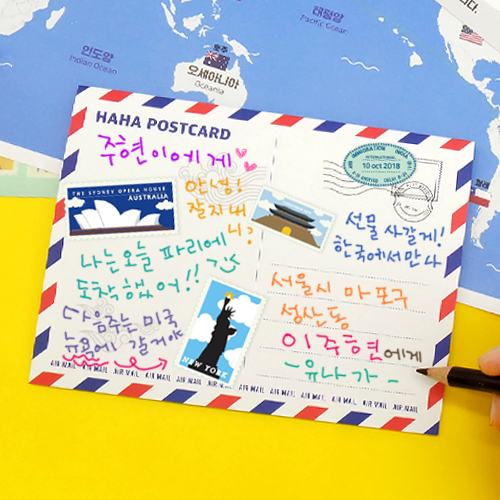 태평양
Pacific Ocean
인도양
Indian Ocean
호주
오세아니아
Oceania
칠레
HAHA POSTCARD
주현이에게
안녕!
잘지내
니?
THE SYDNEY OPERA HOUSE
AUSTRALIA
나는 오늘 파리에
도착했어!!
다음주는 미국
뉴욕에 갈거야
NEW YORK
IMMIGRATION INDIA
INTERNATIONAL
10 oct 2018
선물 사갈게!
한국에서 만나
서울시 마포구
성산동
이주현에게
-유나가-
AIR MAIL AIR MAIL AIR MAIL AIR MAIL AIR MAIL AIR MAIL AIR MAIL AIR MAIL AIR MAIL